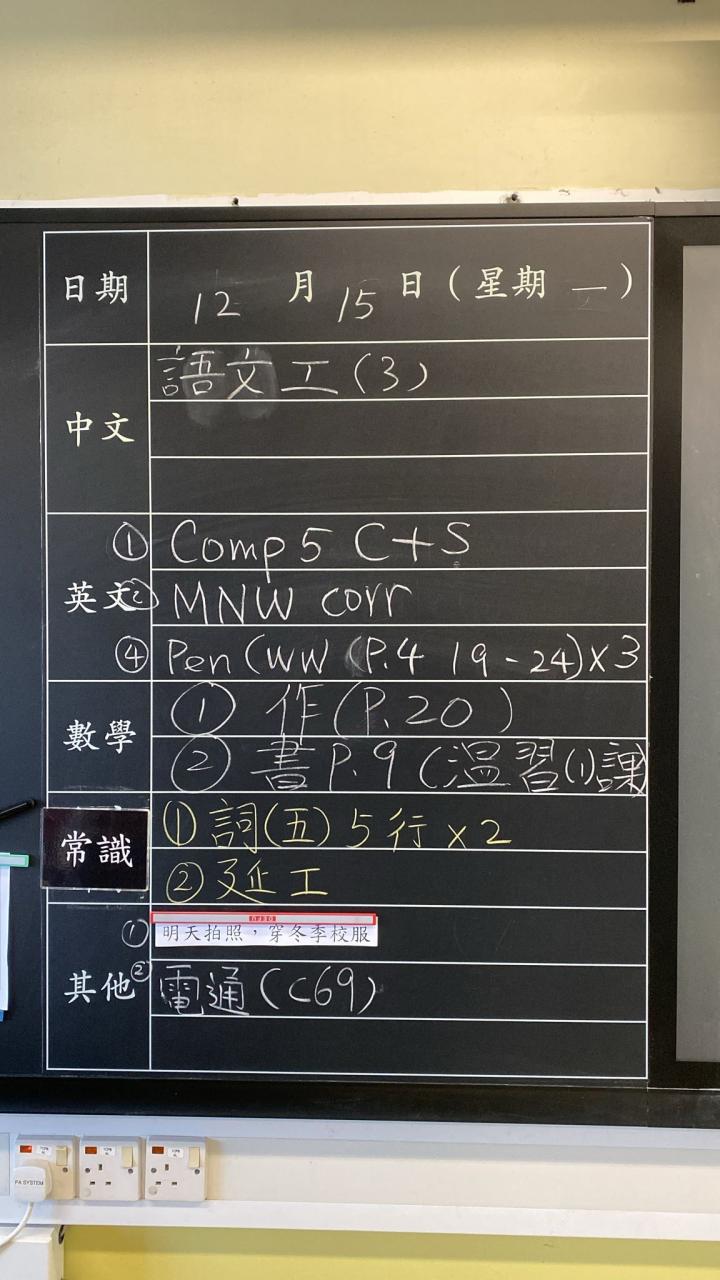 日期 12 月 15 日 ( 星期 一 )
中文
語文工 (3)
英文
① Comp 5 C+S
② MNW corr
④ Pen (WW (P.4 19-24) x 3
數學
① 作 (P.20)
② 書 P.9 (溫習(1)課
常識
① 詞(五) 5 行 x 2
② 延工
其他
① 明天拍照，穿冬季校服
② 電通 (C69)
PA SYSTEM